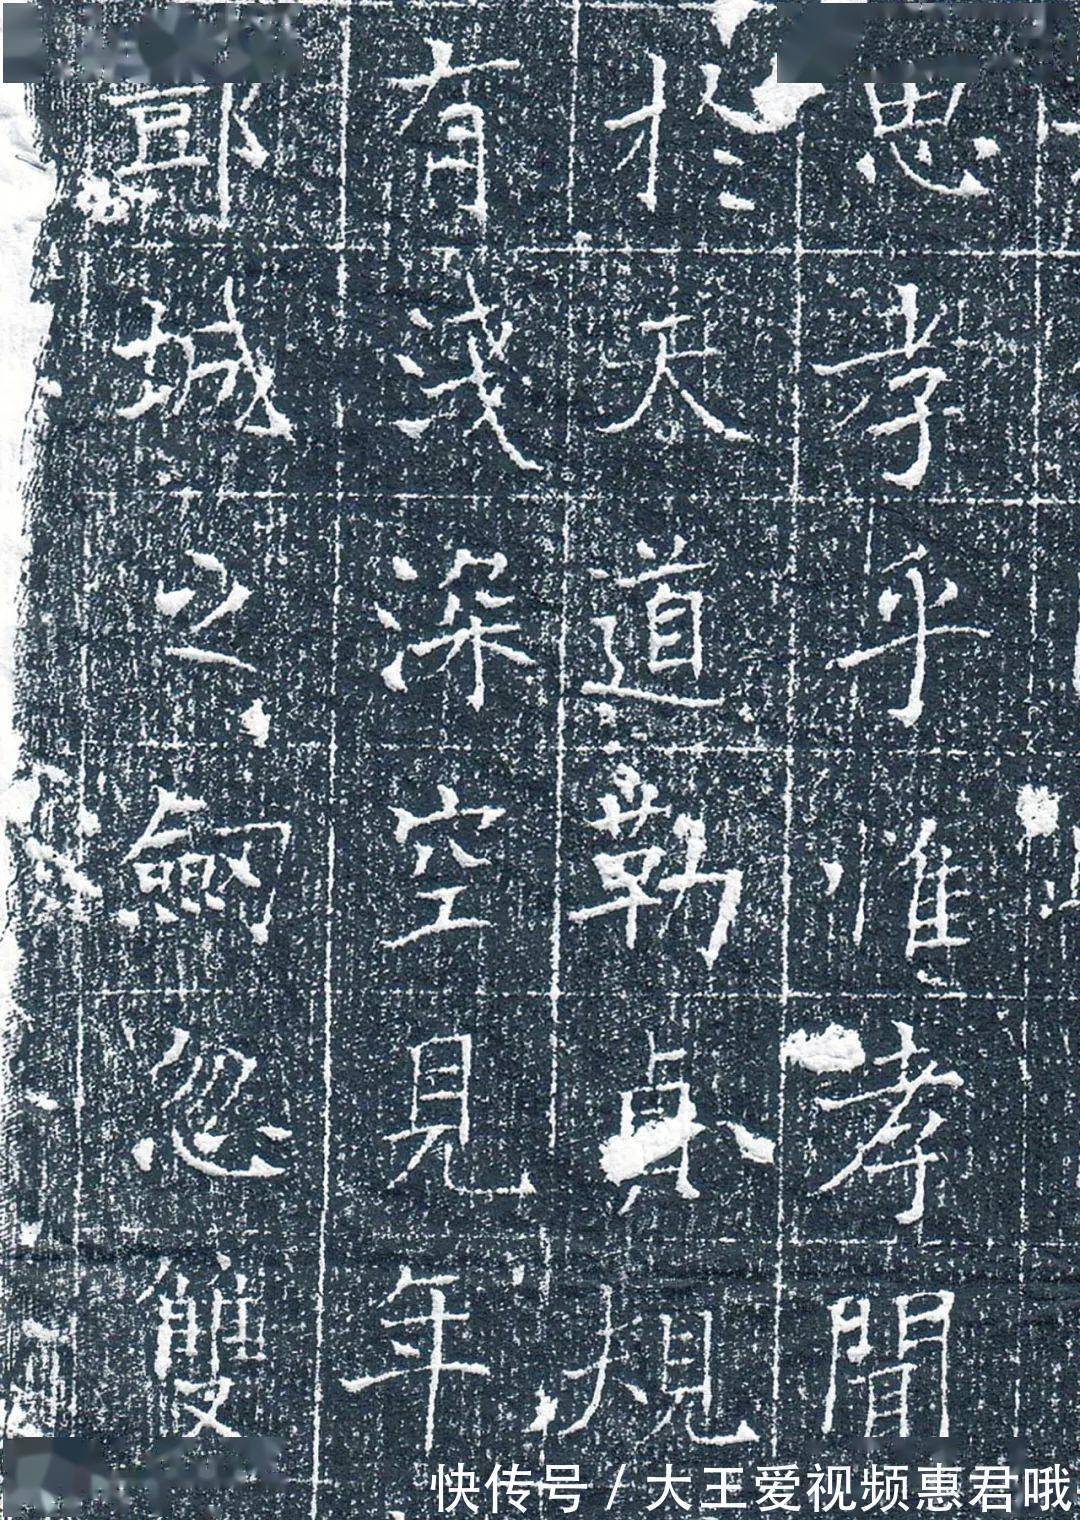 思孝乎惟孝聞
於天道勒貞規
有淺深空見年
酆城之劒忽雙
快传号 / 大王爱视频惠君哦